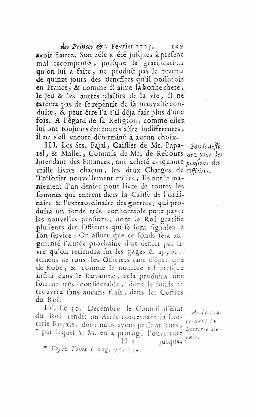 des Princes &c. Février 1705. 129
avoit flattée. Son zèle a été jusques à present
mal recompensé, puisque la gratification
qu'on lui a faite, ne produit pas le revenu
de quinze jours des Benefices qu'il possedoit
en France; & comme il aime la bonne chere,
le jeu & les autres plaisirs de la vie, il ne
tardera pas de se repentir de sa mauvaise con-
duite, & peut être l'a t'il déja fait plus d'une
fois. A l'égard de sa Religion, comme elles
lui ont toujours été toutes assez indifferentes,
il ne s'est encore déterminé à aucun choix.
III. Les Srs. Fajal, Caissier de Mr. Pupa-
rel, & Mallet, Commis de Mr. de Rebours
Intendant des Finances, ont acheté cinquante
mille livres chacun, les deux Charges de
Tresorier nouvellement créées; ils ont le ma-
niement d'un denier pour livre de toutes les
sommes qui entrent dans la Caisse de l'ordi-
naire & l'extraordinaire des guerres, qui pro-
duira un fonds très-confortable pour payer
les nouvelles pensions, dont le Roi gratifie
plusieurs des Officiers qui se sont signalez à
son service. On assure que ce fonds sera au-
gmenté l'année prochaine d'un denier par li-
vre qu'on retiendra sur les gages &
de tous les Officiers tant d'épée que
de Robe, & comme le nombre est presque
infini dans le Royaume, cela produira une
somme très-considerable, dont le fonds se
trouvera sans aucuns frais, dans les Coffres
du Roi.
IV. Le 30. Decembre le Conseil d'Etat
du Roi rendit un Arrêt concernant la Lot-
terie Royale, dont nous avons parlé ailleurs,
* par lequel S. M. en a prorogé l'ouverture
H 2 jusques
* Voyez Tome I. pag.
pour les
pensions des
Officiers.
Arrêt con-
cernant la
Lotterie